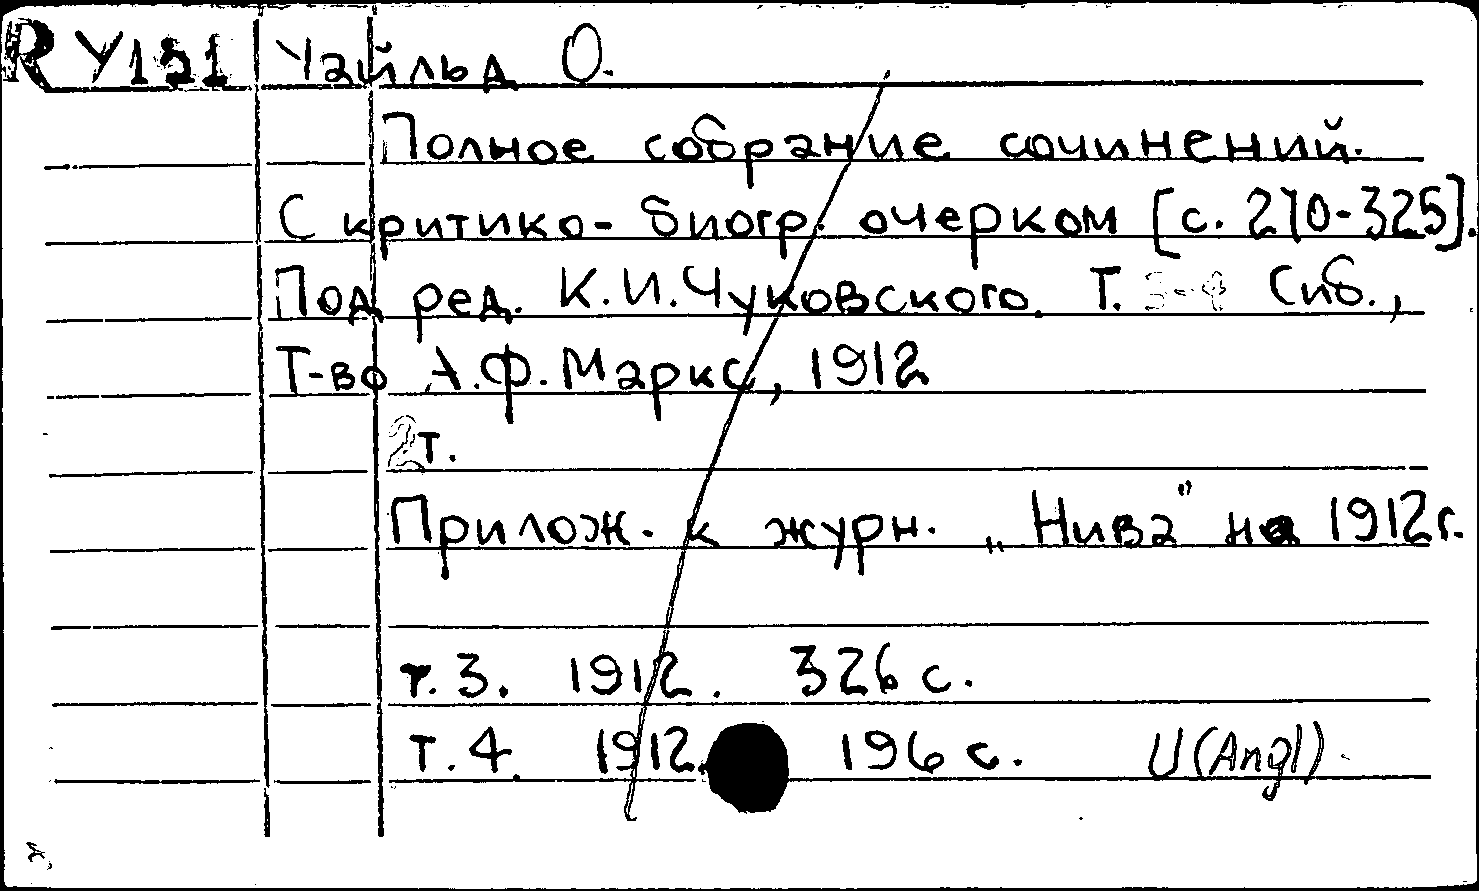 R У121 Уайльд О.
Полное собрание сочинений.
С критико-биогр. очерком [с. 270-325].
Под ред. К.И.Чуковского. Т. 3-4 Спб.,
Т-во А.Ф.Маркс, 1912
2т.
Прилож. к журн. „Нива" на 1912г.
т.3. 1912. 326 с.
т.4. 1912. 196 с. U(Angl).